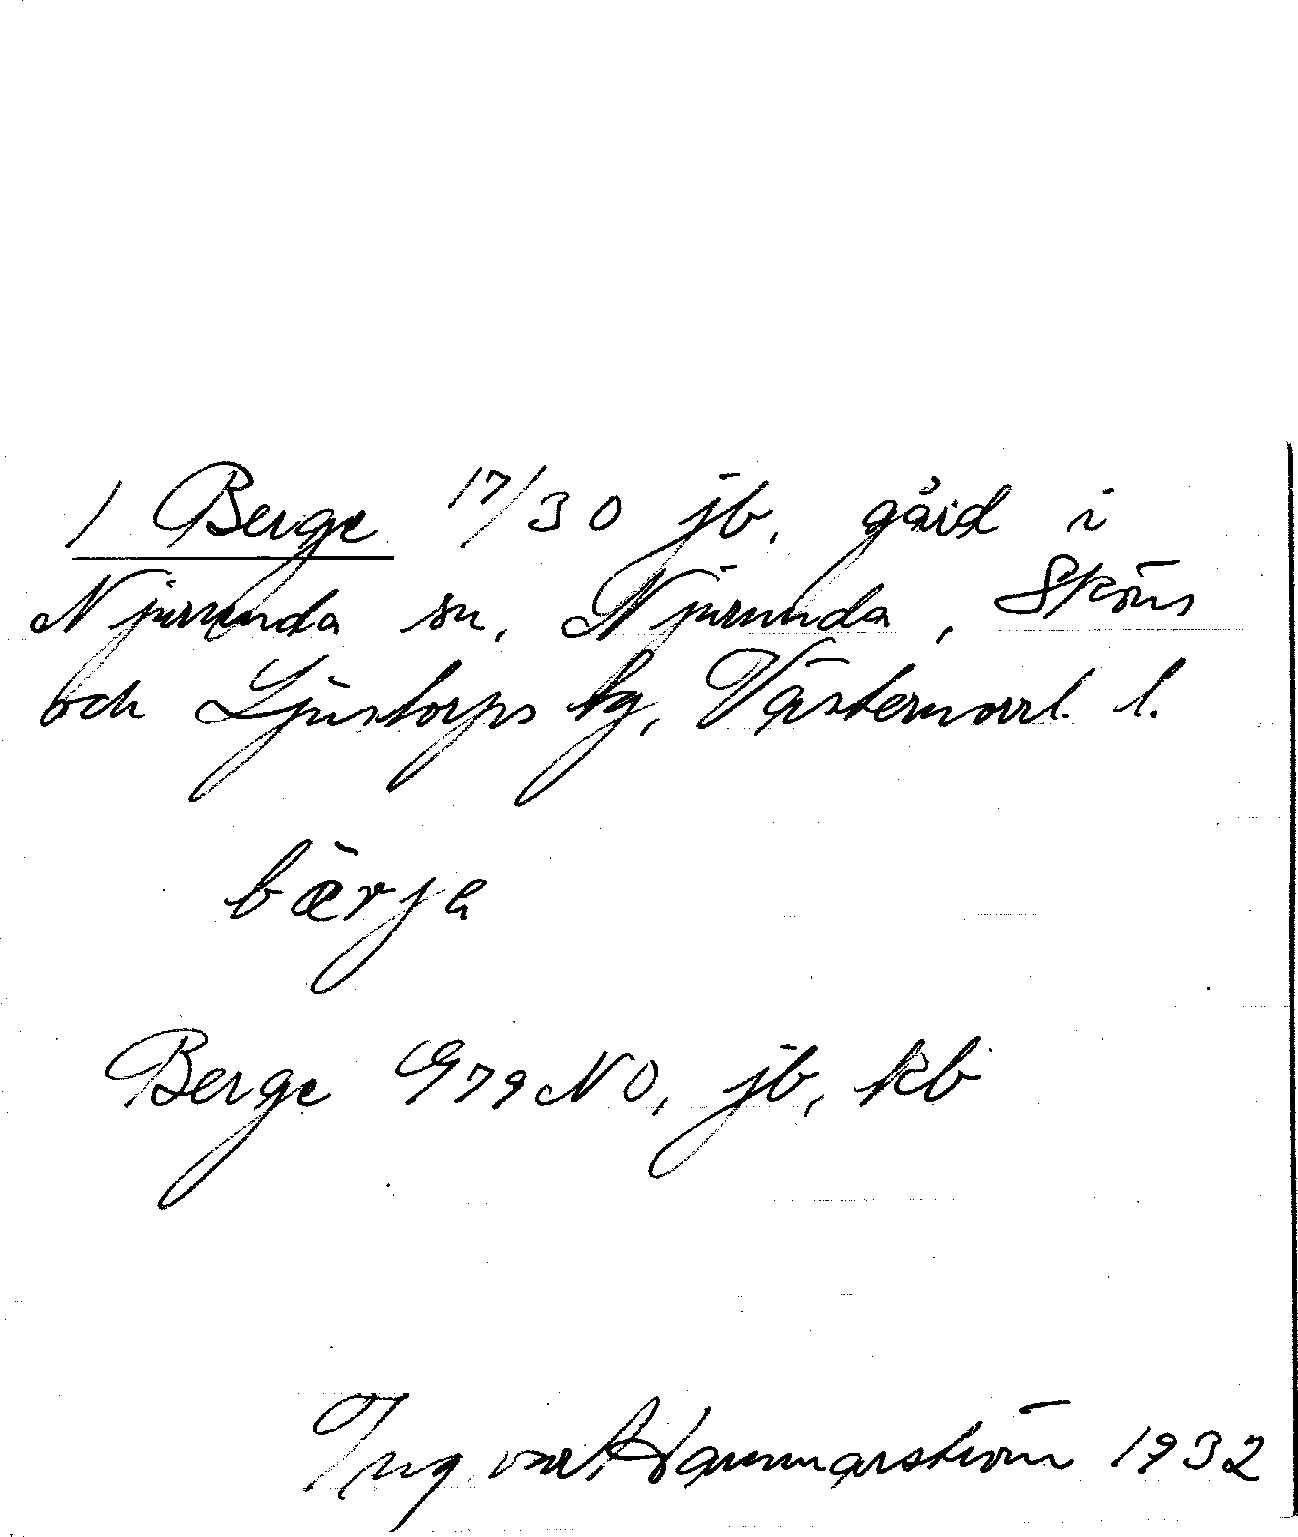 1 Berge 17/30 jb. gård i
Njurunda sn, Njurunda, Sköns
och Ljustorps tg, Västernorrl. l.
bærja
Berge G79NO, jb, kb
Ingvar Hammarström 1932